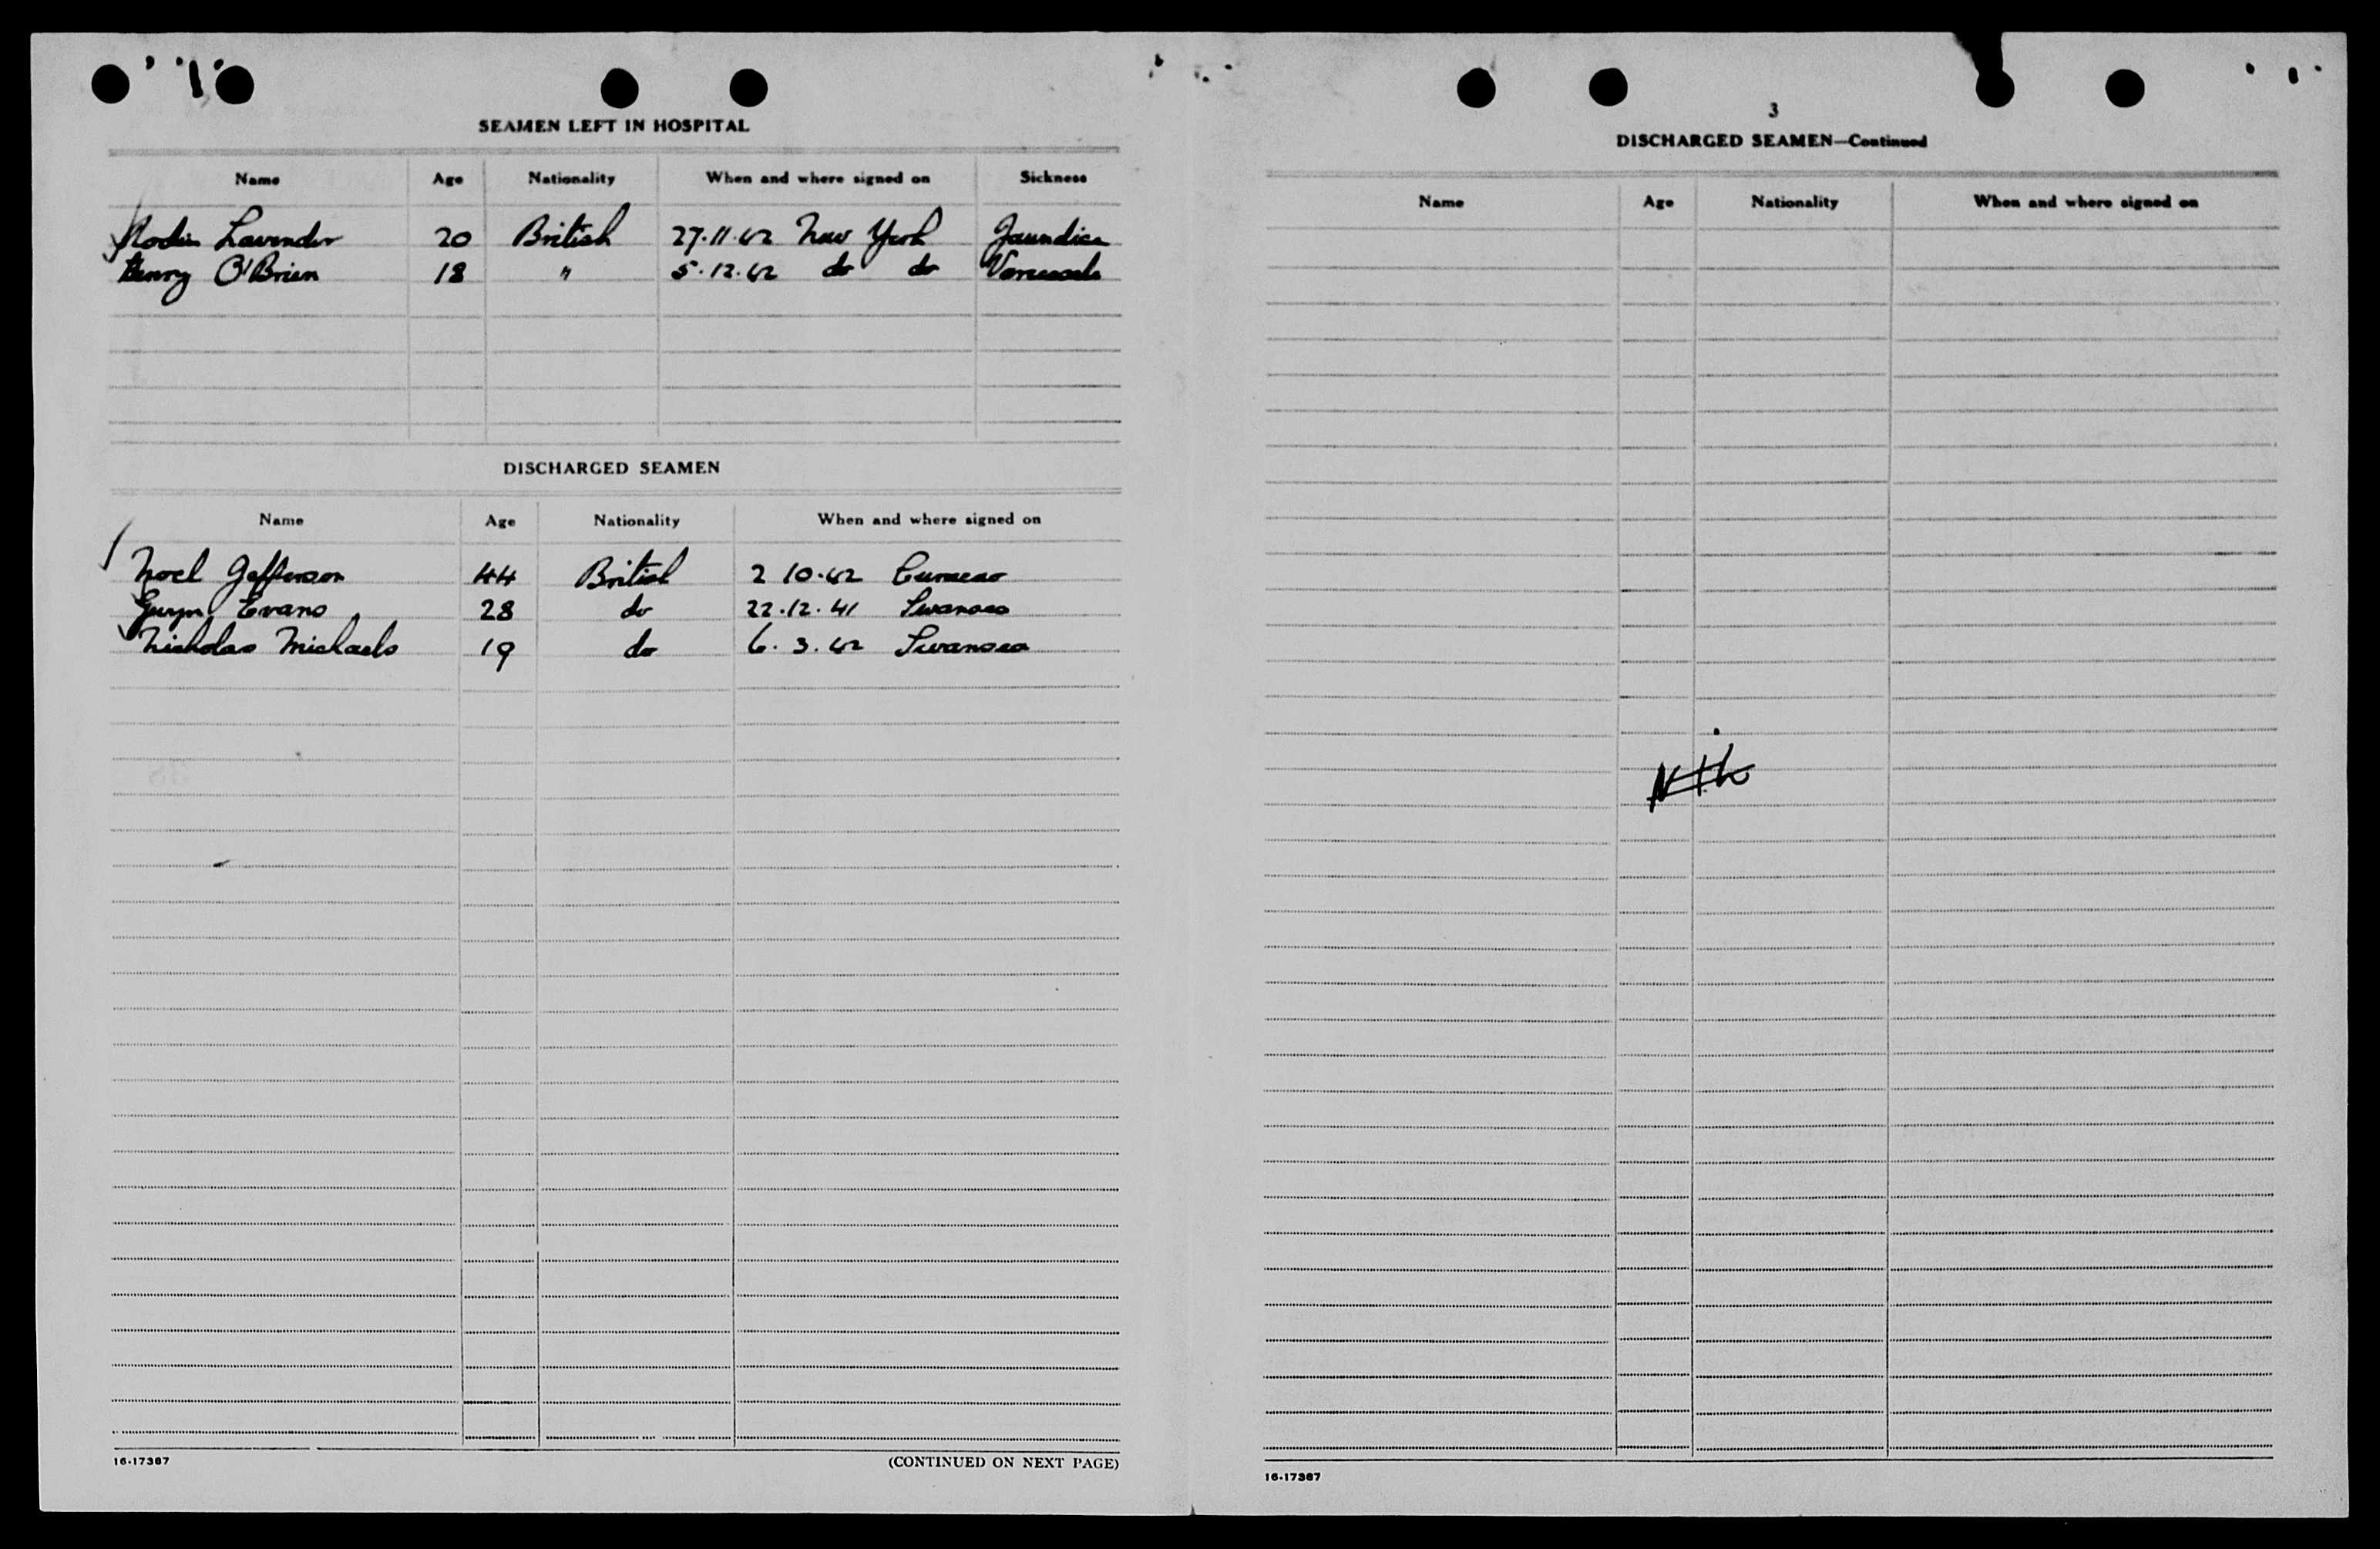 SEAMEN LEFT IN HOSPITAL
Name Age Nationality When and where signed on Sickness
Lavender 20 British 27.11.42 New York Jaundice
Henry O'Brien 18 " 5.12.42 do do
DISCHARGED SEAMEN
Name Age Nationality When and where signed on
Noel Jefferson 44 British 2 10.42 Curacao
Gwyn Evans 28 do 22.12.41 Swansea
Nicholas Michaels 19 do 6.3.42 Swansea
16-17387 (CONTINUED ON NEXT PAGE)
3
DISCHARGED SEAMEN—Continued
Name Age Nationality When and where signed on
16-17387